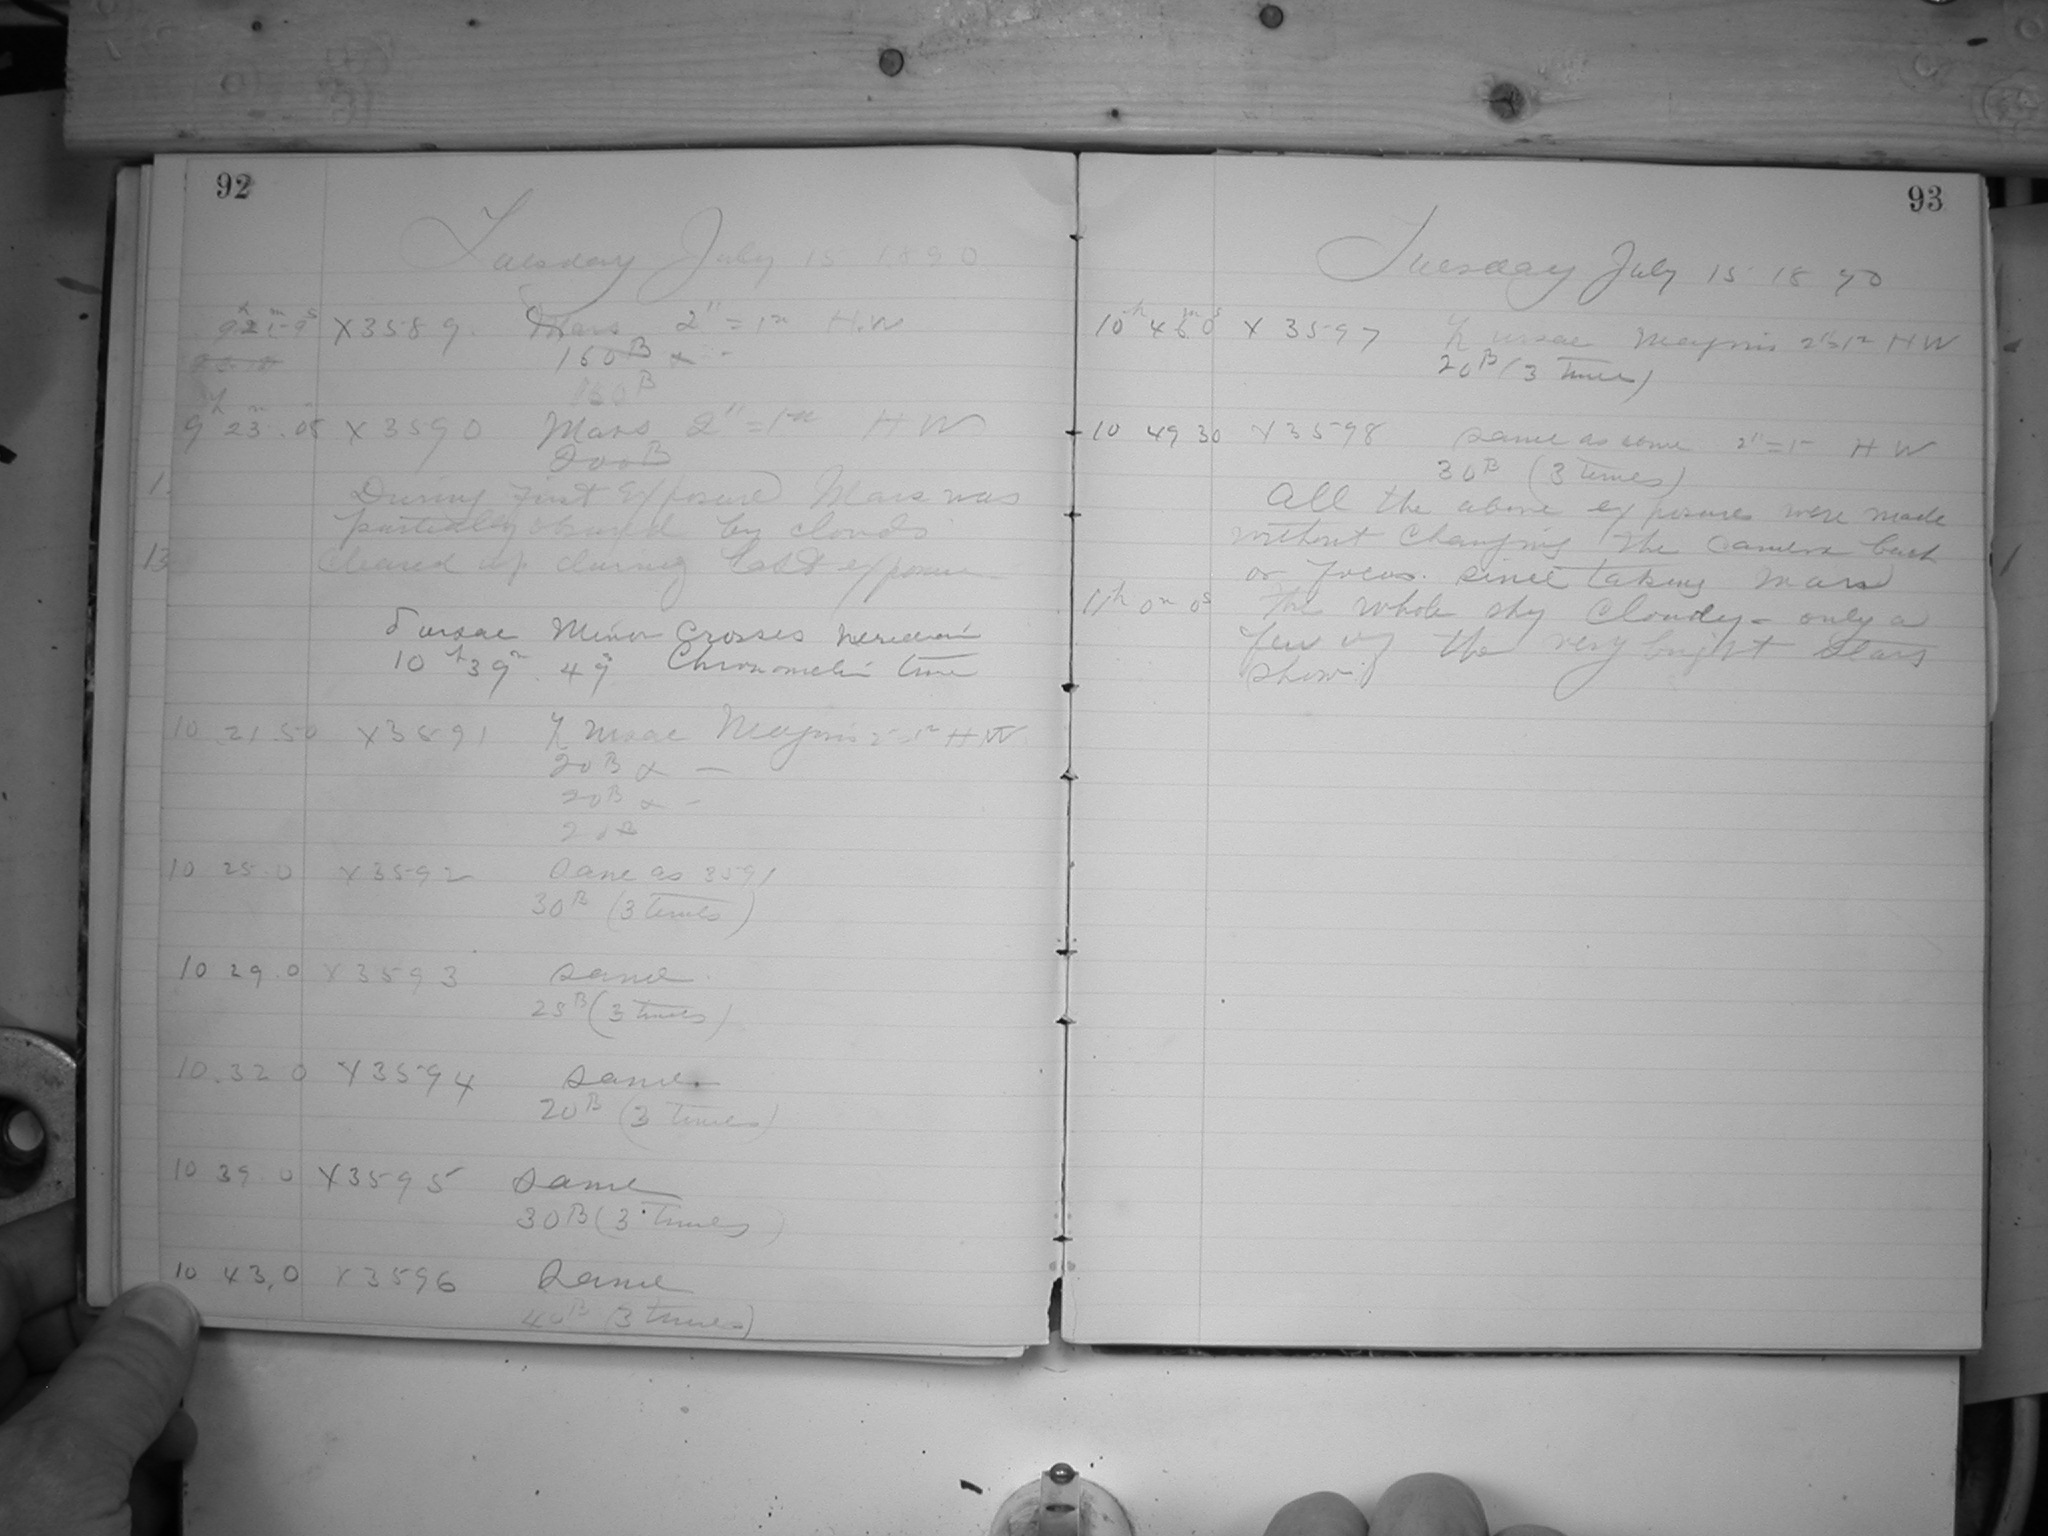 92
Tuesday July 15 1890
X3589. Mars 2" = 1m H.W
160B x -
160B
9h 23m.05 X3590 Mars 2" = 1m H W
200B
1. During first exposure Mars was
partially obscured by clouds
13 Cleared up during last exposure
δ ursae Minor Crosses meridian
10h 39m. 49s Chronometer time
10 .21.50 X3591 ζ Ursae Majoris 2"=1m H W
20B x -
20B x -
20B
10 25.0 X3592 Same as 3591
30B (3 times)
10 29.0 X3593 Same
25B (3 times)
10.32 0 X3594 Same
20B (3 times)
10 39 0 X3595 Same
30B (3 times)
10 43,0 X3596 Same
40B (3 times)
93
Tuesday July 15 1890
10h 46m 0s X 3597 ζ ursae Majoris 2"=1m H W
20B (3 times)
10 49 30 X3598 same as above 2"=1m H W
30B (3 times)
All the above exposures were made
without changing the camera back
or focus. since taking Mars
11h 0m 0s The whole sky cloudy - only a
few of the very bright stars
show